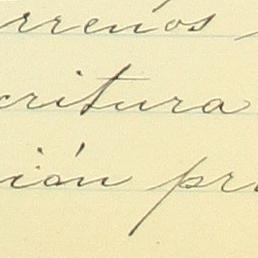 rrenos
critura
ión pr